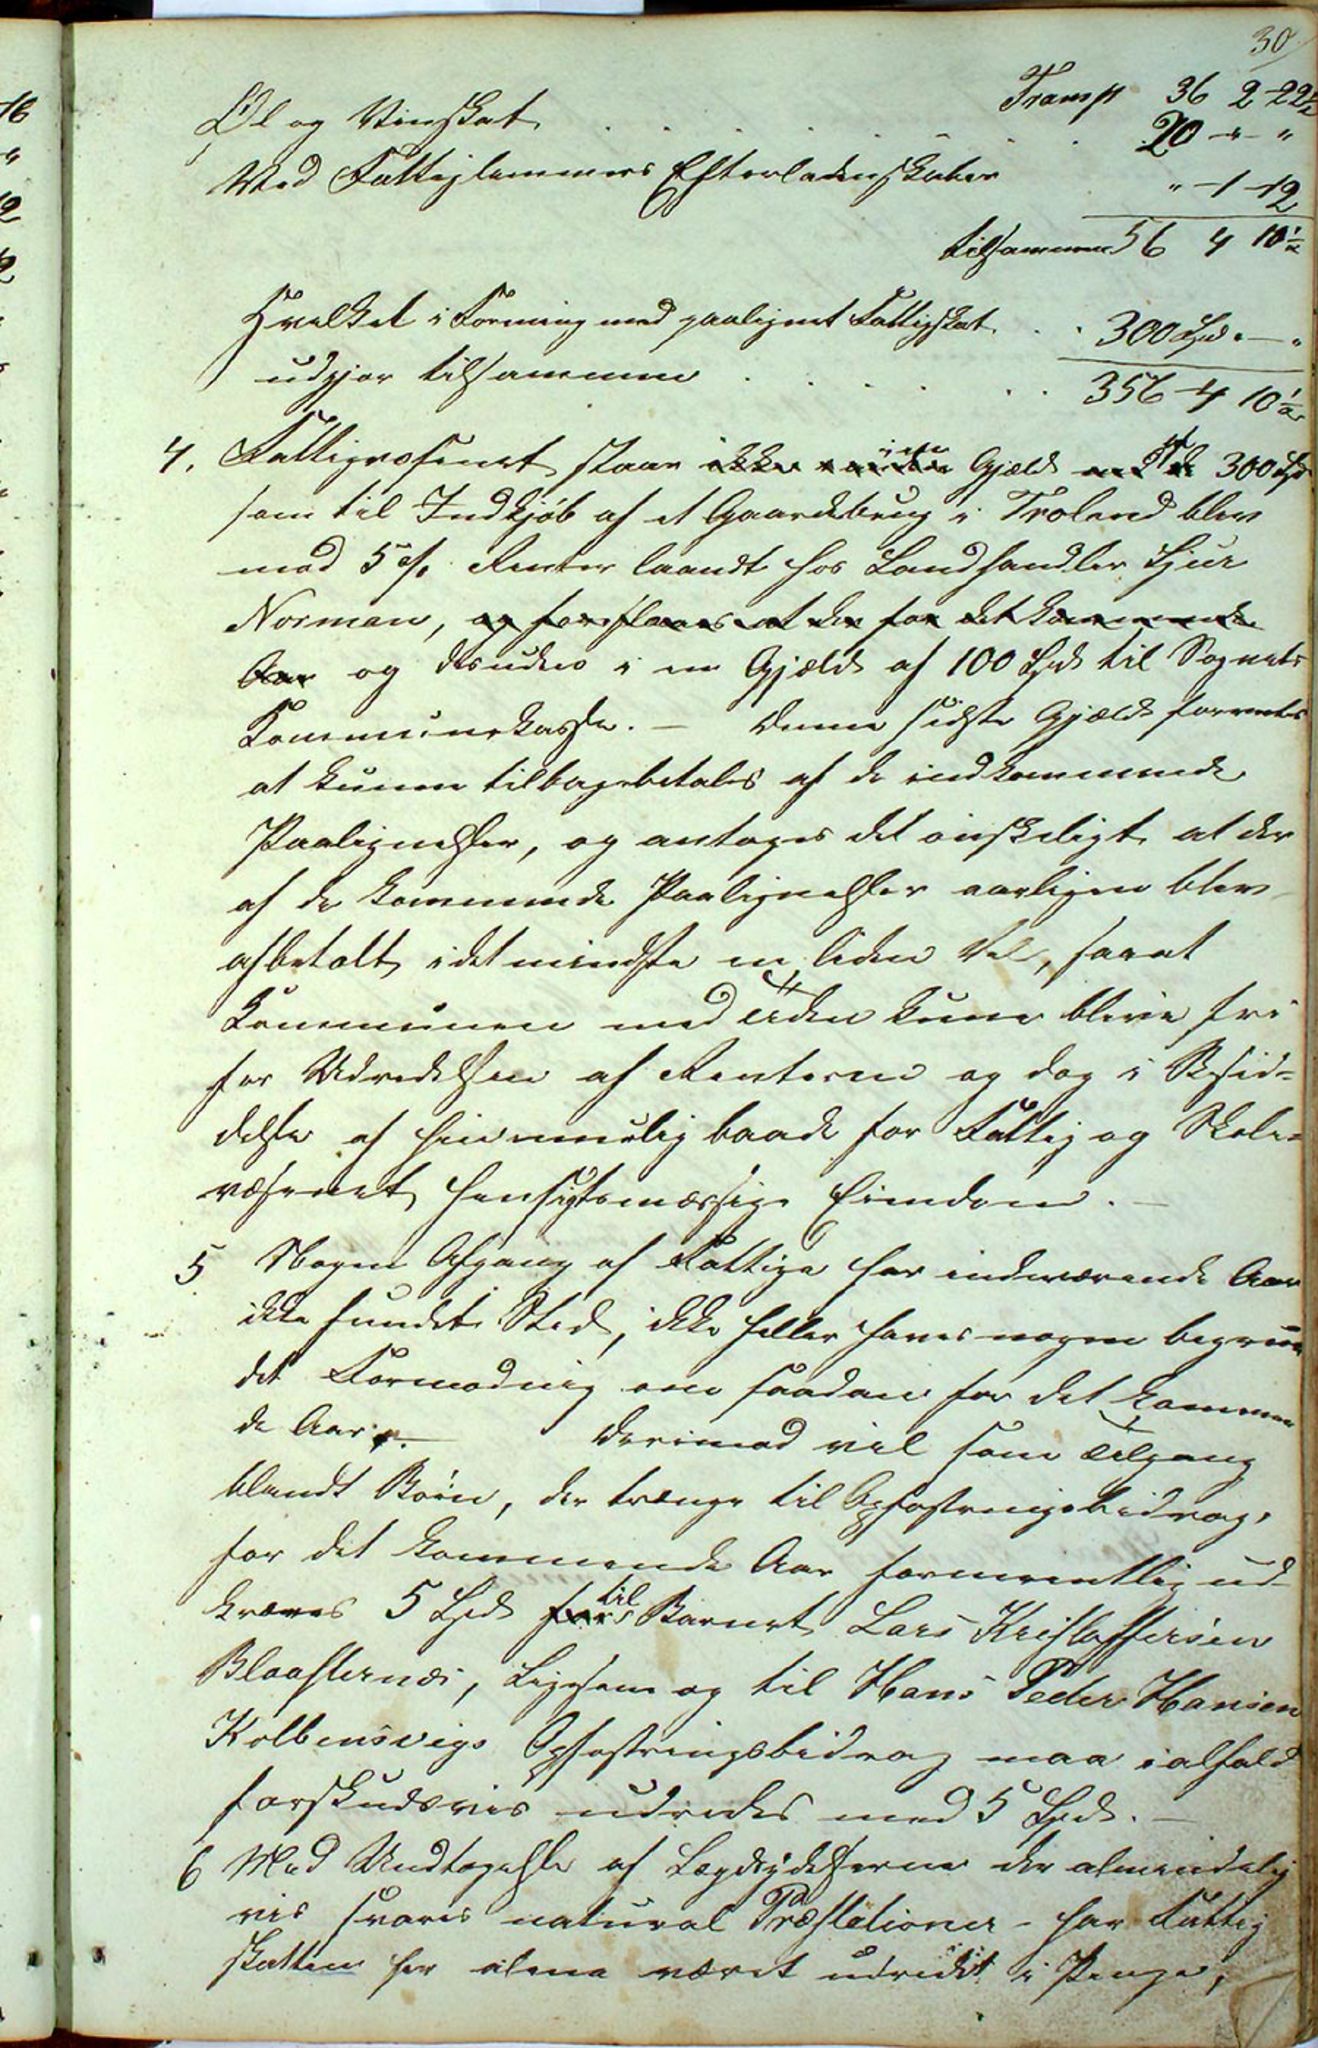 30
Transp 36 2 22½
Øl og Vinskat . . . . . . 20 - " - "
Ved Fattiglemmers Efterladenskaber " - 1 - 12
tilsammen 56 4 10½
Hvilket i Forening med paalignet Fattigskat . . 300 Spd " - "
udgjør tilsammen . . . . . . 356 - 4 10½
4. Fattigvæsenet staar i en Gjæld 300 Spd
som til Indkjøb af et Gaardebrug i Troland blev
med 5 % Renter laandt hos Landhandler Sjur
Norman, og foreslaaes at der for det kommende
Aar og desuden i en Gjæld af 100 Spd til Sognets
Kommunekasse. - Denne sidste Gjæld forventes
at kunne tilbagebetales af de indkommende
Paalignelser, og antages det ønskeligt at der
af de kommende Paalignelser aarligen blev
afbetalt idetmindste en liden Del, saaat
Kommunen med Tiden kunne blive fri
for Udredelsen af Renterne og dog i Besid-
delse af hiin muelig baade for Fattig og Skole-
væsenet hensigtsmæssige Eiendom. -
5 Nogen Afgang af Fattige har indeværende Aar
ikke fundet Sted, ikke heller haves nogen begrun
det Formodning om saadan for det kommen
de Aar. - Derimod vil som Tilgang
blandt Børn, der trænge til Opfostringsbidrag,
for det kommende Aar formentlig ud-
kræves 5 Spd til Barnet Lars Kristoffersen
Blaafternæs, Ligesom og til Hans Peder Hansen
Kolbensvigs Opfostringsbidrag maa ialfald
forskudsvis udredes med 5 Spd. -
6 Med Undtagelse af Lægdsydelserne der almindelig
vis svares natural Præstationer - har Fattig
skatten her alene været udredet i Penge,